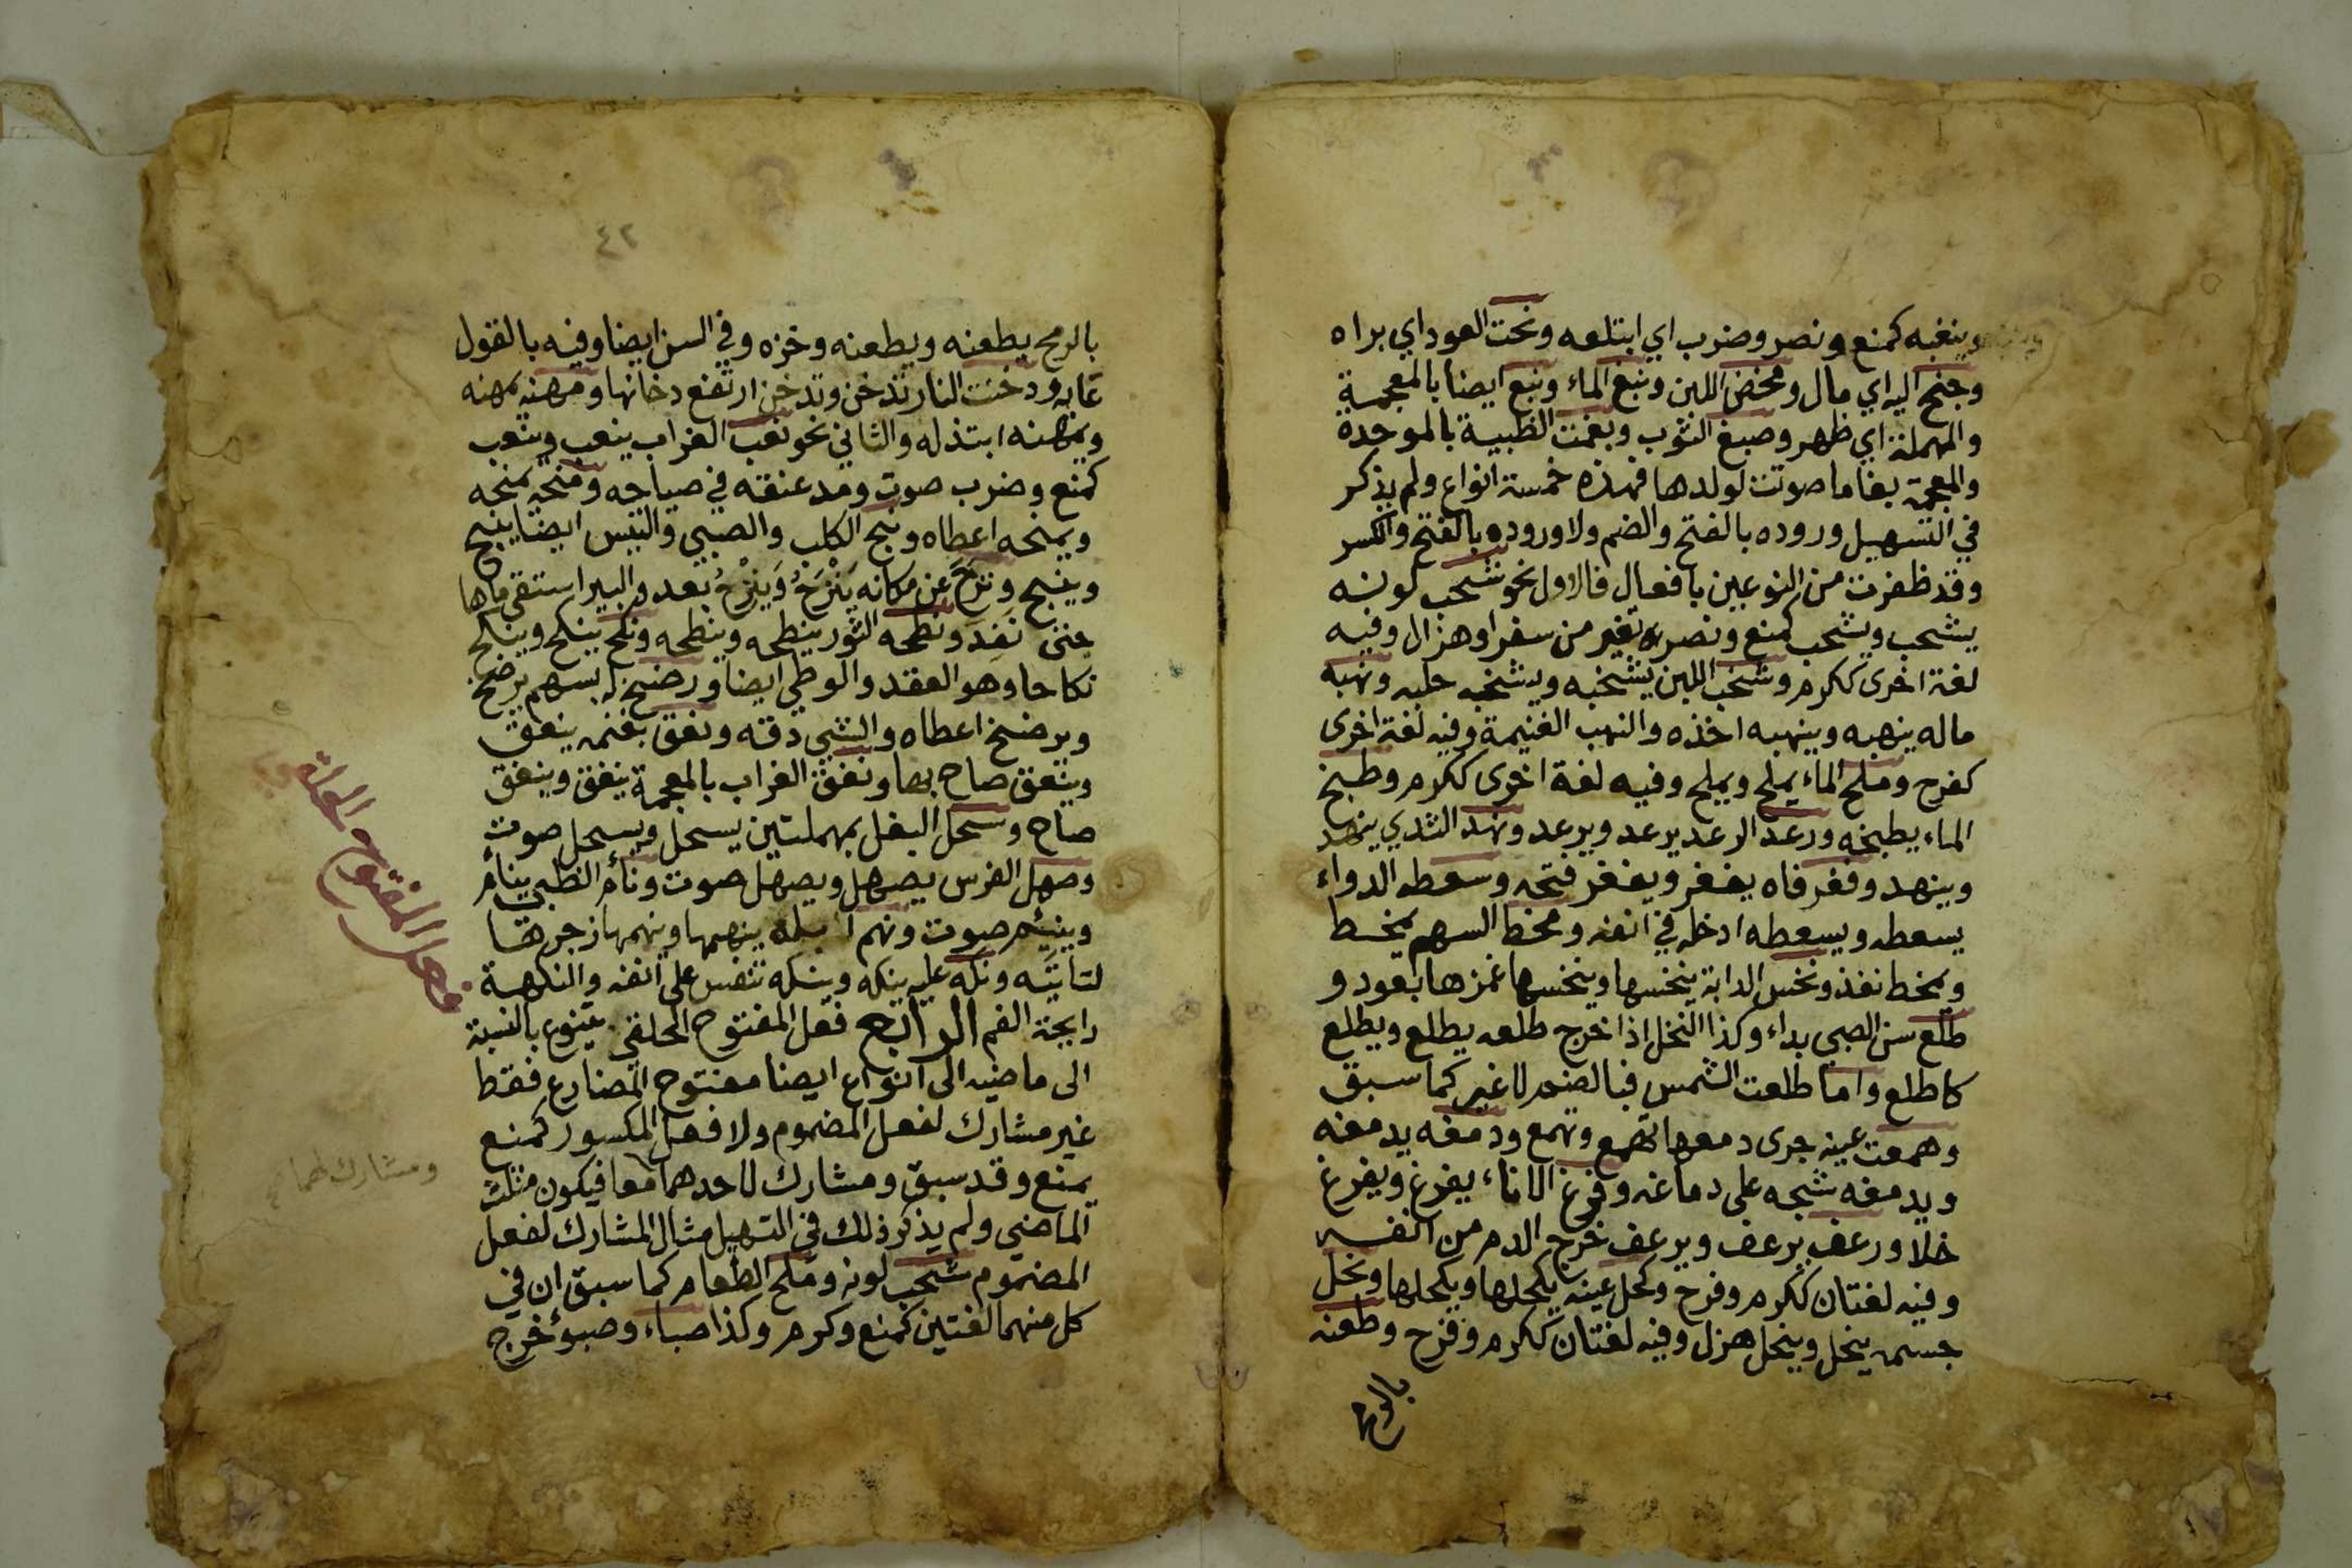 وينغبه كمنع ونصر وضرب اي ابتلعه ونحت العود اي براه
وجنح اليه اي مال ومخض اللبن ونبغ الماء ونبع ايضا بالمعجمة
والمهملة اي ظهر وصبغ الثوب وبغمت الظبية بالموحدة
والمعجمة بغاما صوتت لولدها فهذه خمسة انواع ولم يذكر
في التسهيل وروده بالفتح والضم ولا وروده بالفتح والكسر
وقد ظفرت من النوعين بافعال فالاول نحو شحب لونه
يشحب ويشحب كمنع ونصر تغير من سفر او هزال وفيه
لغة اخرى ككرم وشخب اللبن يشخبه ويشخبه حلبه ونهبه
ماله ينهبه وينهبه اخذه والنهب الغنيمة وفيه لغة اخرى
كفرح وملح الماء يملح ويملح وفيه لغة اخرى ككرم وطبخ
الماء يطبخه ورعد الرعد يرعد ويرعد ونهد الثدي ينهد
وينهد وفغر فاه يفغر ويفغر فتحه وسعطه الدواء
يسعطه ويسعطه ادخله في انفه ومخط السهم يمخط
ويمخط نفذ ونخس الدابة ينخسها وينخسها غمزها بعود و
طلع سن الصبي بداء وكذا النخل اذا خرج طلعه يطلع ويطلع
كاطلع واما طلعت الشمس فبالضم لا غير كما سبق
وهمعت عينه جرى دمعها تهمع وتهمع ودمغه يدمغه
ويدمغه شجه على دماغه وفرغ الاناء يفرغ ويفرغ
خلا ورعف يرعف ويرعف خرج الدم من انفه
وفيه لغتان ككرم وفرح وكحل عينه يكحلها ويكحلها ونحل
جسمه ينحل وينحل هزل وفيه لغتان ككرم وفرح وطعنه
بالرمح
٤٢
بالرمح يطعنه ويطعنه وخزه وفي السن ايضا وفيه بالقول
عابه ودخنت النار تدخن وتدخن ارتفع دخانها ومهنه يمهنه
ويمهنه ابتذله والثاني نحو نعب الغراب ينعب وينعب
كمنع وضرب صوت ومد عنقه في صياحه ومنحه يمنحه
ويمنحه اعطاه ونبح الكلب والصبي والتيس ايضا ينبح
وينبح ونزح عن مكانه ينزح وينزح بعد والبير استقى ماها
حتى نفد ونطحه الثور ينطحه وينطحه ونكح ينكح وينكح
نكاحا وهو العقد والوطي ايضا ورضخ له بسهم يرضخ
ويرضخ اعطاه والشي دقه ونعق بغنمه ينعق
وينعق صاح بها ونغق الغراب بالمعجمة ينغق وينغق
صاح وسحل البغل بمهملتين يسحل ويسحل صوت
وصهل الفرس يصهل ويصهل صوت ونأم الظبي ينأم
وينئم صوت ونهم ابله ينهمها وينهمها زجرها
لتأتيه ونكه عليه ينكه وينكه تنفس على انفه والنكهة
رايحة الفم الرابع فعل المفتوح الحلقي يتنوع بالنسبة
الى ماضيه الى انواع ايضا مفتوح المضارع فقط
غير مشارك لفعل المضموم ولا فعل المكسور كمنع
يمنع وقد سبق ومشارك لاحدهما معا فيكون مثلث
الماضي ولم يذكر ذلك في التسهيل مثال المشارك لفعل
المضموم شحب لونه وملح الطعام كما سبق ان في
كل منهما لغتين كمنع وكرم وكذا صباء وصبؤ خرج
فعل المفتوح الحلقي
ومشارك لهما